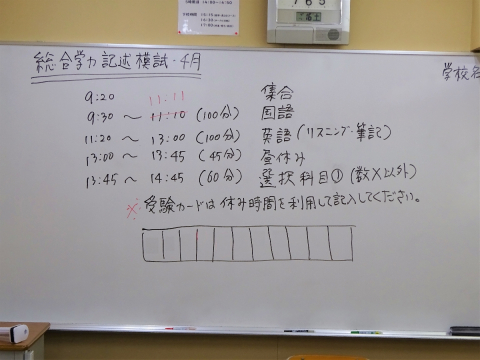 765
土
学校名
総合学力記述模試・4月
9:20 集合
11:11
9:30 ～ 11:10 (100分) 国語
11:20 ～ 13:00 (100分) 英語 (リスニング・筆記)
13:00 ～ 13:45 (45分) 昼休み
13:45 ～ 14:45 (60分) 選択科目① (数X以外)
※ 受験カードは休み時間を利用して記入してください。